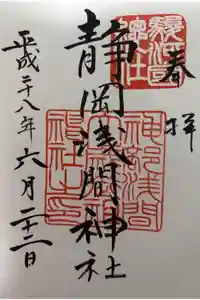 奉拝
駿河國
總社
静岡浅間神社
神部浅間
神社之印
平成二十八年六月二十二日